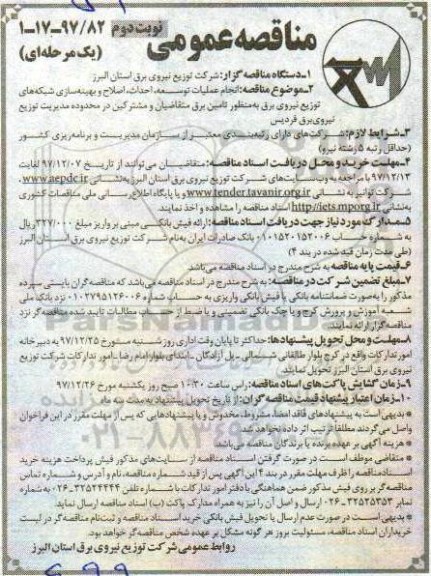 مناقصه عمومی
نوبت دوم
۱-۱۷-۹۷/۸۲
(یک مرحله‌ای)
۱-دستگاه مناقصه گزار: شرکت توزیع نیروی برق استان البرز
۲-موضوع مناقصه: انجام عملیات توسعه، احداث، اصلاح و بهینه‌سازی شبکه‌های
توزیع نیروی برق به‌منظور تامین برق متقاضیان و مشترکین در محدوده مدیریت توزیع
نیروی‌برق فردیس
۳-شرایط لازم: شرکت‌های دارای رتبه‌بندی معتبر از سازمان مدیریت و برنامه‌ریزی کشور
(حداقل رتبه ۵ رشته نیرو)
۴-مهلت خرید و محل دریافت اسناد مناقصه: متقاضیان می‌توانند از تاریخ ۹۷/۱۲/۰۷ لغایت
۹۷/۱۲/۱۳ با مراجعه به وب سایت‌های شرکت توزیع نیروی برق استان البرز به‌نشانی www.aepdc.ir،
شرکت توانیر به نشانی www.tender.tavanir.org.ir و یا پایگاه اطلاع‌رسانی ملی مناقصات کشوری
به‌نشانی http://iets.mporg.ir اسناد مناقصه را مشاهده و اخذ نمایند.
۵-مدارک مورد نیاز جهت دریافت اسناد مناقصه: ارائه فیش بانکی مبنی بر واریز مبلغ ۳۲۷/۰۰۰ ریال
به شماره حساب ۰۱۰۱۵۲۰۱۵۲۰۰۶ بانک صادرات ایران به‌نام شرکت توزیع نیروی برق استان البرز
(طی مدت زمان قید شده در بند ۴)
۶-قیمت پایه مناقصه به شرح مندرج در اسناد مناقصه می‌باشد.
۷-مبلغ تضمین شرکت در مناقصه: به شرح مندرج در اسناد مناقصه می‌باشد که مناقصه‌گران بایستی سپرده
مذکور را به‌صورت ضمانتنامه بانکی یا فیش بانکی واریزی به حساب شماره ۰۱۰۲۷۹۵۱۲۶۰۰۶ نزد بانک ملی
شعبه آموزش و پرورش کرج و یا چک بانکی تضمینی و یا ضبط از حساب مطالبات تایید شده مناقصه‌گر نزد
مناقصه‌گزار ارائه نمایند.
۸-مهلت و محل تحویل پیشنهادها: حداکثر تا پایان وقت اداری روز شنبه مورخ ۹۷/۱۲/۲۵ به دبیرخانه
امور تدارکات واقع در کرج بلوار طالقانی شمالی - پل آزادگان - ابتدای بلوار امام رضا - امور تدارکات شرکت توزیع
نیروی برق استان البرز تحویل نمایند.
۹-زمان گشایش پاکت‌های اسناد مناقصه: راس ساعت ۱۰:۳۰ صبح روز یکشنبه مورخ ۹۷/۱۲/۲۶
۱۰-زمان اعتبار پیشنهاد قیمت مناقصه‌گران: از تاریخ تحویل پیشنهاد به مدت سه ماه
* بدیهی است به پیشنهادهای فاقد امضا، مشروط، مخدوش و یا پیشنهادهایی که پس از مهلت مقرر در این فراخوان
واصل می‌گردند مطلقا ترتیب اثر داده نخواهد شد.
* هزینه آگهی بر عهده برنده یا برندگان مناقصه می‌باشد.
* متقاضی موظف است در صورت گرفتن اسناد مناقصه از سایت‌های مذکور فیش پرداخت هزینه خرید
اسناد مناقصه را ظرف مهلت مقرر در بند ۴ این آگهی پس از قید شماره مناقصه، نام و آدرس و شماره تماس
مناقصه‌گر بر روی فیش مذکور ضمن هماهنگی با دفتر امور تدارکات با شماره تلفن ۳۲۵۲۴۴۴۴-۰۲۶ به شماره
نمابر ۳۲۵۲۵۳۵۳-۰۲۶ ارسال و اصل آن را نیز به همراه مدارک پاکت (ب) اسناد مناقصه ارسال نماید.
* بدیهی است در صورت عدم ارسال یا تحویل فیش بانکی خرید اسناد مناقصه و ثبت نام مناقصه‌گر در لیست
خریداران اسناد مناقصه، مسئولیت بروز هر گونه مشکل بر عهده شخص مناقصه‌گر خواهد بود.
روابط عمومی شرکت توزیع نیروی برق استان البرز